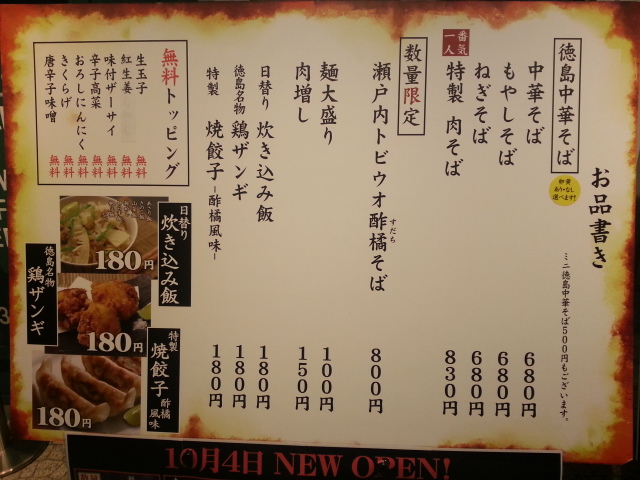 お品書き
ミニ徳島中華そば500円もございます。
徳島中華そば
中華そば 680円
もやしそば 680円
ねぎそば 680円
一番人気
特製 肉そば 830円
数量限定
瀬戸内トビウオ酢橘そば 800円
すだち
麺大盛り 100円
肉増し 150円
日替り 炊き込み飯 180円
徳島名物 鶏ザンギ 180円
特製 焼餃子-酢橘風味- 180円
無料トッピング
生玉子 無料
紅生姜 無料
味付ザーサイ 無料
辛子高菜 無料
おろしにんにく 無料
きくらげ 無料
唐辛子味噌 無料
日替り
炊き込み飯
180円
徳島名物
鶏ザンギ
180円
特製
焼餃子 酢橘風味
180円
10月4日 NEW OPEN!